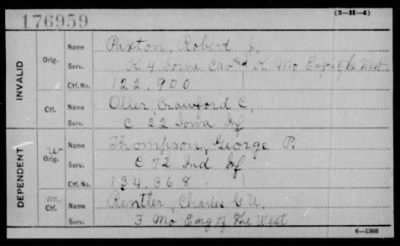 176959
(3—H—4)
INVALID
Orig.
Name Paxton, Robert J.
Serv. K 4 Iowa Cav & K Mo Engrs of the West
Ctf. No. 122,900
Ctf.
Name Oller, Crawford C.
Serv. C 22 Iowa Inf
DEPENDENT
W Orig.
Name Thompson, George P.
Serv. C 72 Ind Inf
Ctf. No. 134,368
m Ctf.
Name Rentler, Charles G.
Serv. F Mo Eng of The West
6—1303